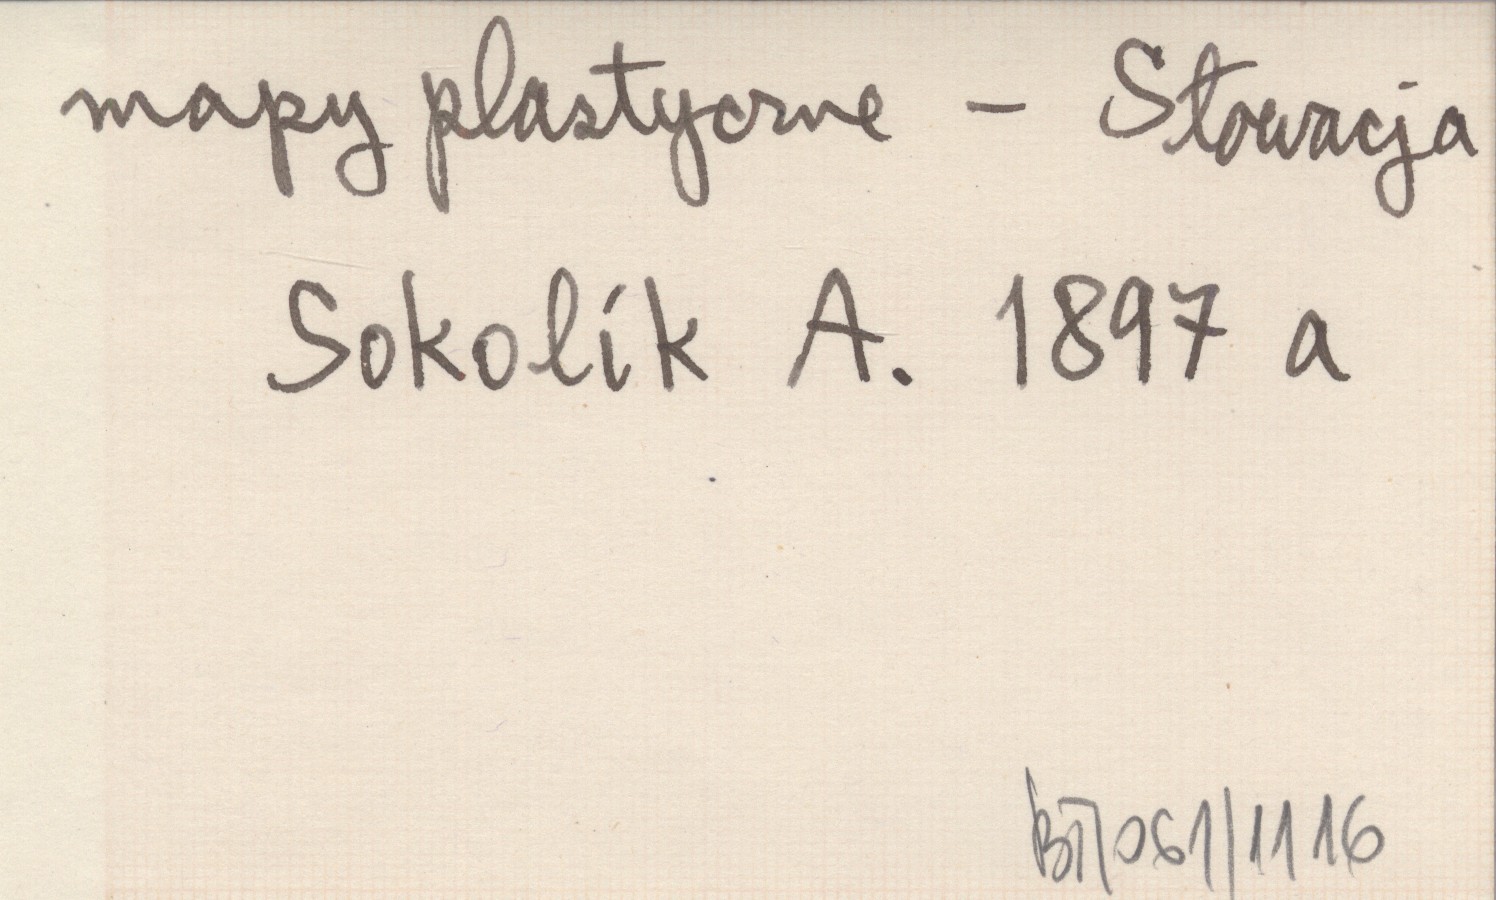 mapy plastyczne – Słowacja
Sokolík A. 1897 a
BT/061/1116